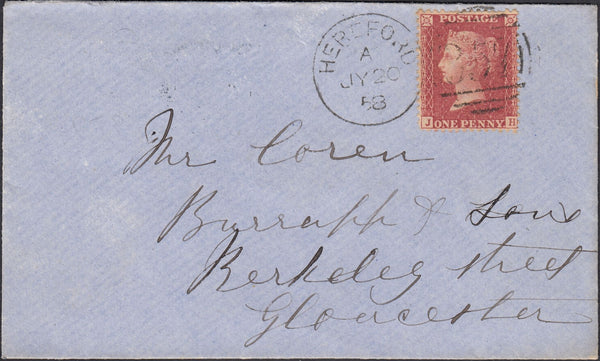 HEREFORD
A
JY 20
58
POSTAGE
ONE PENNY
J H
Mr Coren
Burrapp & Sons
Berkeley street
Gloucester